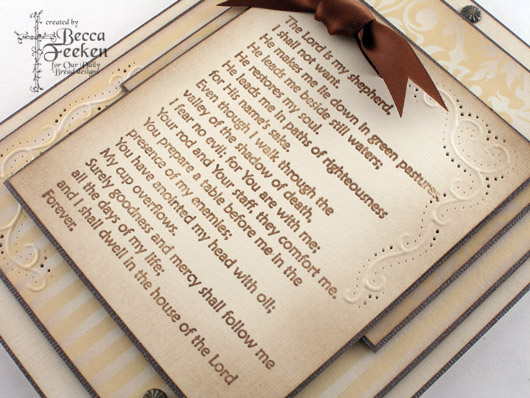 created by
Becca
Feeken
for Our Daily
Bread designs
The Lord is my shepherd,
I shall not want.
He makes me lie down in green pastures
He leads me beside still waters;
He restores my soul.
He leads me in paths of righteousness
for His name's sake.
Even though I walk through the
valley of the shadow of death,
I fear no evil for You are with me;
Your rod and Your staff they comfort me.
You prepare a table before me in the
presence of my enemies;
You have anointed my head with oil;
My cup overflows.
Surely goodness and mercy shall follow me
all the days of my life:
and I shall dwell in the house of the Lord
Forever.